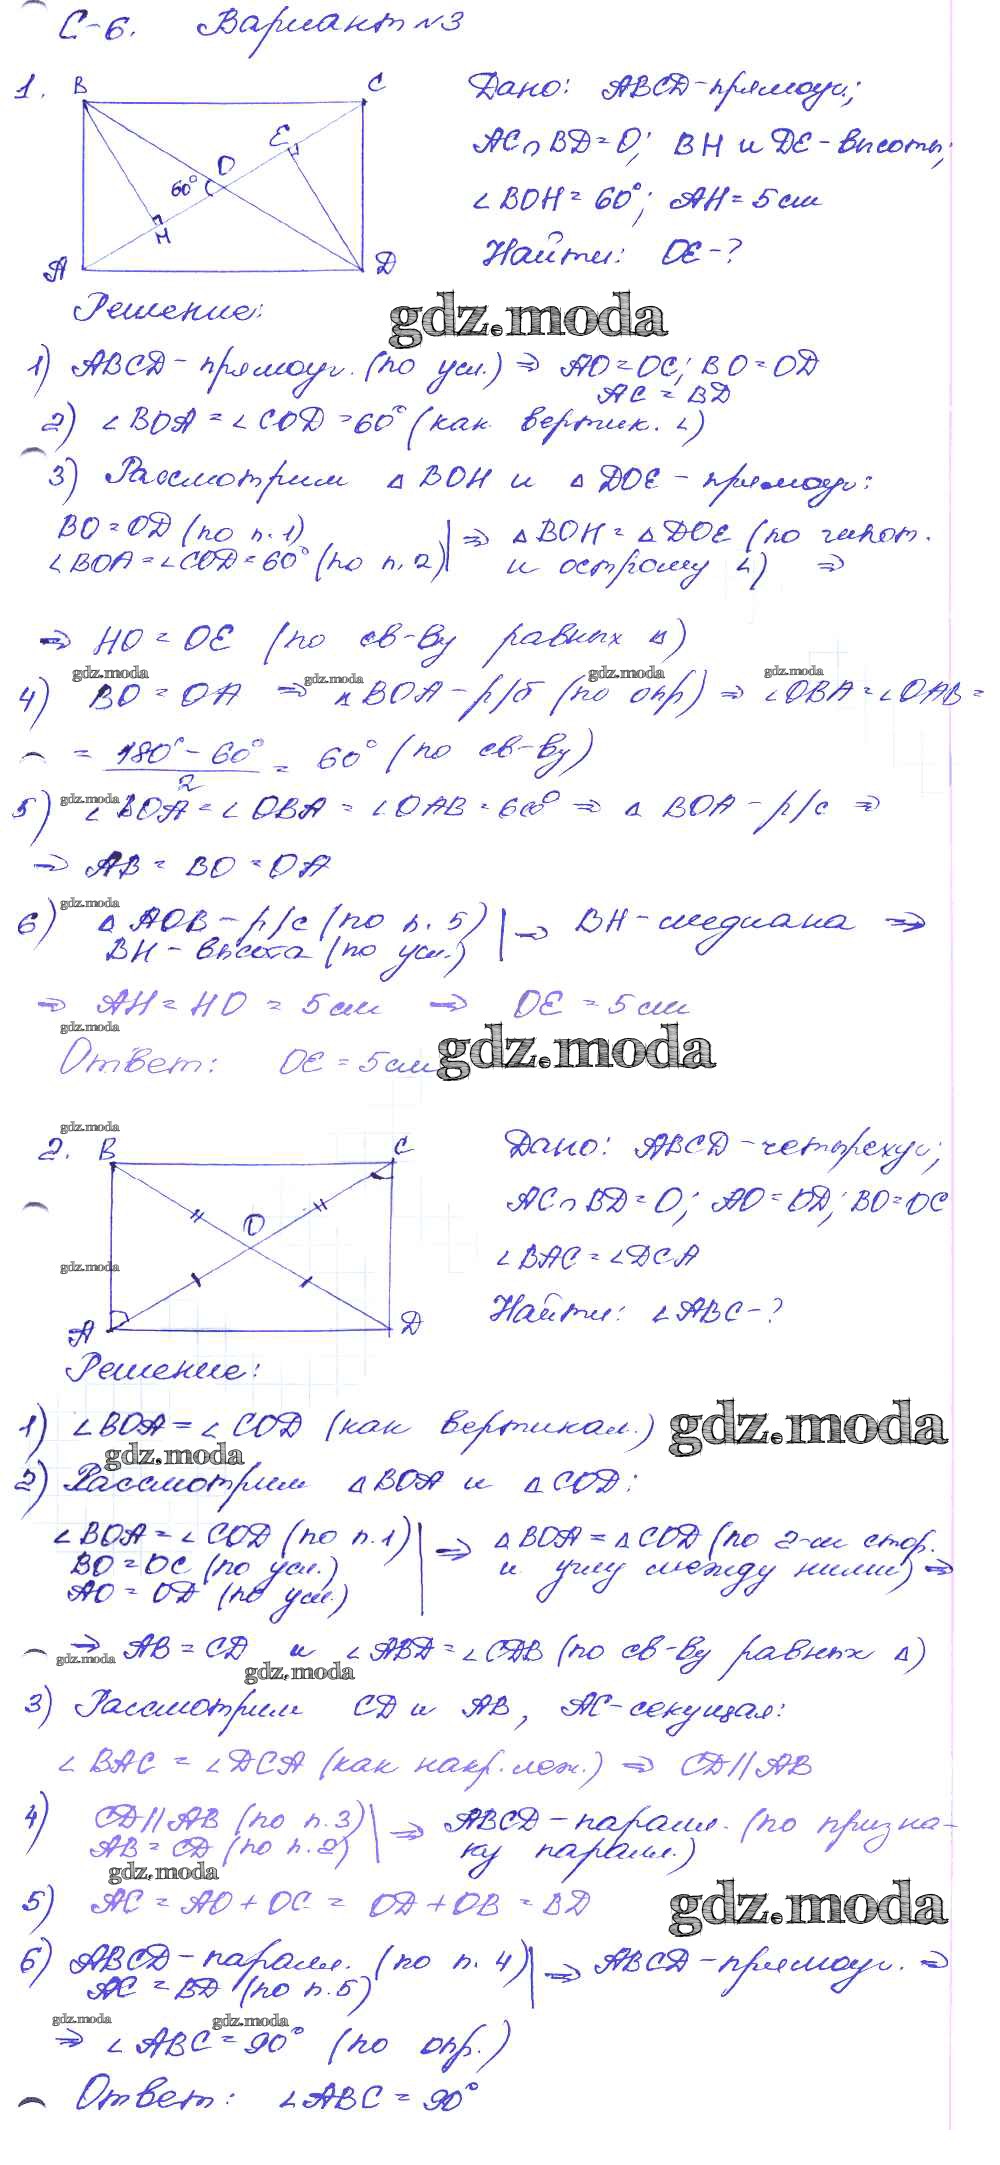 С-6. Вариант №3
1. B C
E
O
60°
H
A D
Дано: ABCD-прямоуг.;
AC∩BD=O; BH и DE-высоты;
∠BOH=60°; AH=5см
Найти: OE-?
Решение:
gdz.moda
1) ABCD-прямоуг. (по усл.) ⇒ AO=OC; BO=OD
AC=BD
2) ∠BOA=∠COD=60° (как вертик. ∠)
3) Рассмотрим △BOH и △DOE-прямоуг:
BO=OD (по п.1)
∠BOA=∠COD=60° (по п.2) ⇒ △BOH=△DOE (по гипот.
и острому ∠) ⇒
⇒ HO=OE (по св-ву равных △)
gdz.moda gdz.moda gdz.moda gdz.moda
4) BO=OA ⇒ △BOA-р/б (по опр) ⇒ ∠OBA=∠OAB=
= (180°-60°)/2 = 60° (по св-ву)
gdz.moda
5) ∠BOA=∠OBA=∠OAB=60° ⇒ △BOA-р/с ⇒
⇒ AB=BO=OA
gdz.moda
6) △AOB-р/с (по п.5)
BH-высота (по усл.) ⇒ BH-медиана ⇒
⇒ AH=HO=5см ⇒ OE=5см
gdz.moda
Ответ: OE=5см
gdz.moda
gdz.moda
2. B C
O
A D
gdz.moda
Дано: ABCD-четырехуг;
AC∩BD=O; AO=OD; BO=OC
∠BAC=∠DCA
Найти: ∠ABC-?
Решение:
1) ∠BOA=∠COD (как вертикал.)
gdz.moda
gdz.moda
2) Рассмотрим △BOA и △COD:
∠BOA=∠COD (по п.1)
BO=OC (по усл.)
AO=OD (по усл.) ⇒ △BOA=△COD (по 2-м стор.
и углу между ними) ⇒
⇒ AB=CD и ∠ABD=∠CDB (по св-ву равных △)
gdz.moda gdz.moda
3) Рассмотрим CD и AB, AC-секущая:
∠BAC=∠DCA (как накр.леж.) ⇒ CD||AB
4) CD||AB (по п.3)
AB=CD (по п.2) ⇒ ABCD-паралл. (по призна-
ку паралл.)
gdz.moda
5) AC=AO+OC=OD+OB=BD
gdz.moda
6) ABCD-паралл. (по п.4)
AC=BD (по п.5) ⇒ ABCD-прямоуг. ⇒
gdz.moda gdz.moda
⇒ ∠ABC=90° (по опр.)
Ответ: ∠ABC=90°